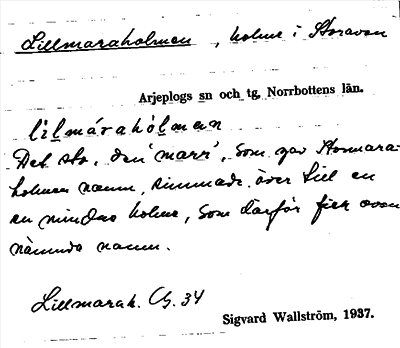 Lillmaraholmen, holme i Storavan
Arjeplogs sn och tg, Norrbottens län.
li̲l̲máraho̲l̲men
Det sto, den 'marr', som gav Stormara-
holmen namn, simmade över till en
en mindre holme, som därför fick ovan
nämnda namn.
Lillmarah. G. 34
Sigvard Wallström, 1937.